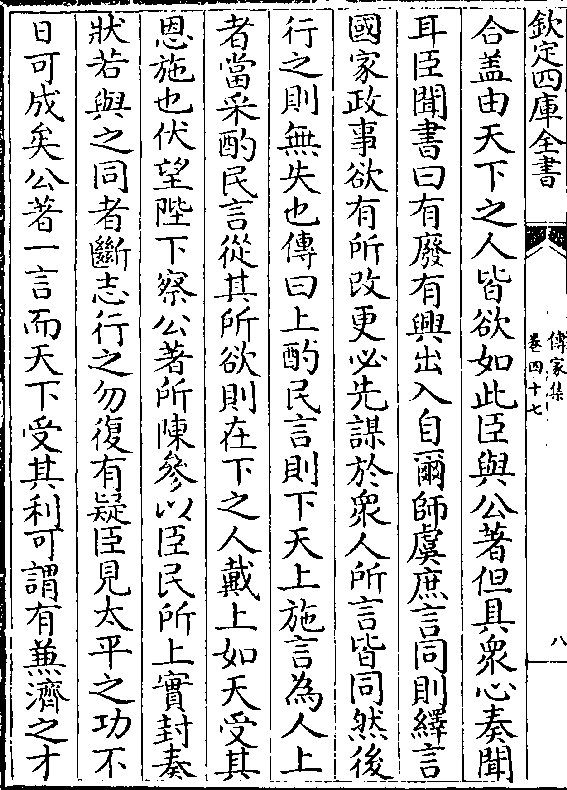 欽定四庫全書
傳家集
卷四十七
八
合盖由天下之人皆欲如此臣與公著但具衆心奏聞
耳臣聞書曰有廢有興出入自爾師虞庶言同則繹言
國家政事欲有所改更必先謀於衆人所言皆同然後
行之則無失也傳曰上酌民言則下天上施言為人上
者當采酌民言從其所欲則在下之人戴上如天受其
恩施也伏望陛下察公著所陳參以臣民所上實封奏
狀若與之同者斷志行之勿復有疑臣見太平之功不
日可成矣公著一言而天下受其利可謂有兼濟之才